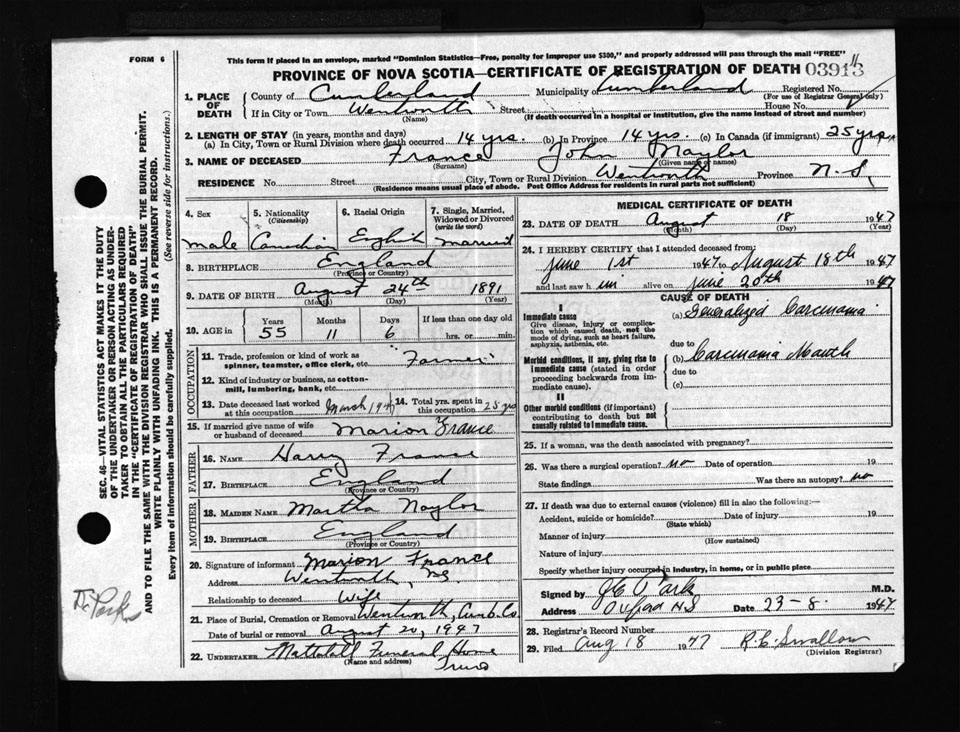 FORM 6
This form if placed in an envelope, marked "Dominion Statistics—Free, penalty for improper use $300," and properly addressed will pass through the mail "FREE"
PROVINCE OF NOVA SCOTIA—CERTIFICATE OF REGISTRATION OF DEATH 03913
1. PLACE OF DEATH County of Cumberland Municipality Cumberland Registered No.
(For use of Registrar General only)
If in City or Town Wentworth Street House No.
(Name) (If death occurred in a hospital or institution, give the name instead of street and number)
2. LENGTH OF STAY (in years, months and days)
(a) In City, Town or Rural Division where death occurred 14 yrs. (b) In Province 14 yrs. (c) In Canada (if immigrant) 25 yrs
3. NAME OF DECEASED France John Naylor
(Surname) (Given name or names)
RESIDENCE No. Street City, Town or Rural Division Wentworth Province N.S.
(Residence means usual place of abode. Post Office Address for residents in rural parts not sufficient)
4. Sex 5. Nationality (Citizenship) 6. Racial Origin 7. Single, Married, Widowed or Divorced (write the word)
male Canadian English married
8. BIRTHPLACE England
(Province or Country)
9. DATE OF BIRTH August 24th 1891
(Month) (Day) (Year)
10. AGE in Years Months Days If less than one day old
55 11 6 hrs. or min.
OCCUPATION
11. Trade, profession or kind of work as spinner, teamster, office clerk, etc. "Farmer"
12. Kind of industry or business, as cotton-mill, lumbering, bank, etc.
13. Date deceased last worked at this occupation March 1947 14. Total yrs. spent in this occupation 25 yrs
15. If married give name of wife or husband of deceased Marion France
FATHER
16. NAME Harry France
17. BIRTHPLACE England
(Province or Country)
MOTHER
18. MAIDEN NAME Martha Naylor
19. BIRTHPLACE England
(Province or Country)
20. Signature of informant Marion France
Address Wentworth, NS
Relationship to deceased Wife
21. Place of Burial, Cremation or Removal Wentworth, Cumb. Co
Date of burial or removal August 20, 1947
22. UNDERTAKER Mattatall Funeral Home
(Name and address) Truro
MEDICAL CERTIFICATE OF DEATH
23. DATE OF DEATH August 18 1947
(Month) (Day) (Year)
24. I HEREBY CERTIFY that I attended deceased from:
June 1st 1947 to August 18th 1947
and last saw h im alive on June 20th 1947
CAUSE OF DEATH
I
Immediate cause (a) Generalized Carcinoma
Give disease, injury or complication which caused death, not the mode of dying, such as heart failure, asphyxia, asthenia, etc.
due to
Morbid conditions, if any, giving rise to immediate cause (stated in order proceeding backwards from immediate cause). (b) Carcinoma
due to
(c)
II
Other morbid conditions (if important) contributing to death but not causally related to immediate cause.
25. If a woman, was the death associated with pregnancy?
26. Was there a surgical operation? no Date of operation 19
State findings Was there an autopsy? no
27. If death was due to external causes (violence) fill in also the following:—
Accident, suicide or homicide? Date of injury 19
(State which)
Manner of injury
(How sustained)
Nature of injury
Specify whether injury occurred in industry, in home, or in public place
Signed by M.D.
Address Oxford NS Date 23-8. 1947
28. Registrar's Record Number
29. Filed Aug 18 1947 R.C. Swallow
(Division Registrar)
SEC. 46—VITAL STATISTICS ACT MAKES IT THE DUTY
OF THE UNDERTAKER OR PERSON ACTING AS UNDER-
TAKER TO OBTAIN ALL THE PARTICULARS REQUIRED
IN THE "CERTIFICATE OF REGISTRATION OF DEATH"
AND TO FILE THE SAME WITH THE DIVISION REGISTRAR WHO SHALL ISSUE THE BURIAL PERMIT.
WRITE PLAINLY WITH UNFADING INK. THIS IS A PERMANENT RECORD.
Every item of information should be carefully supplied. (See reverse side for instructions.)
Dr. Park